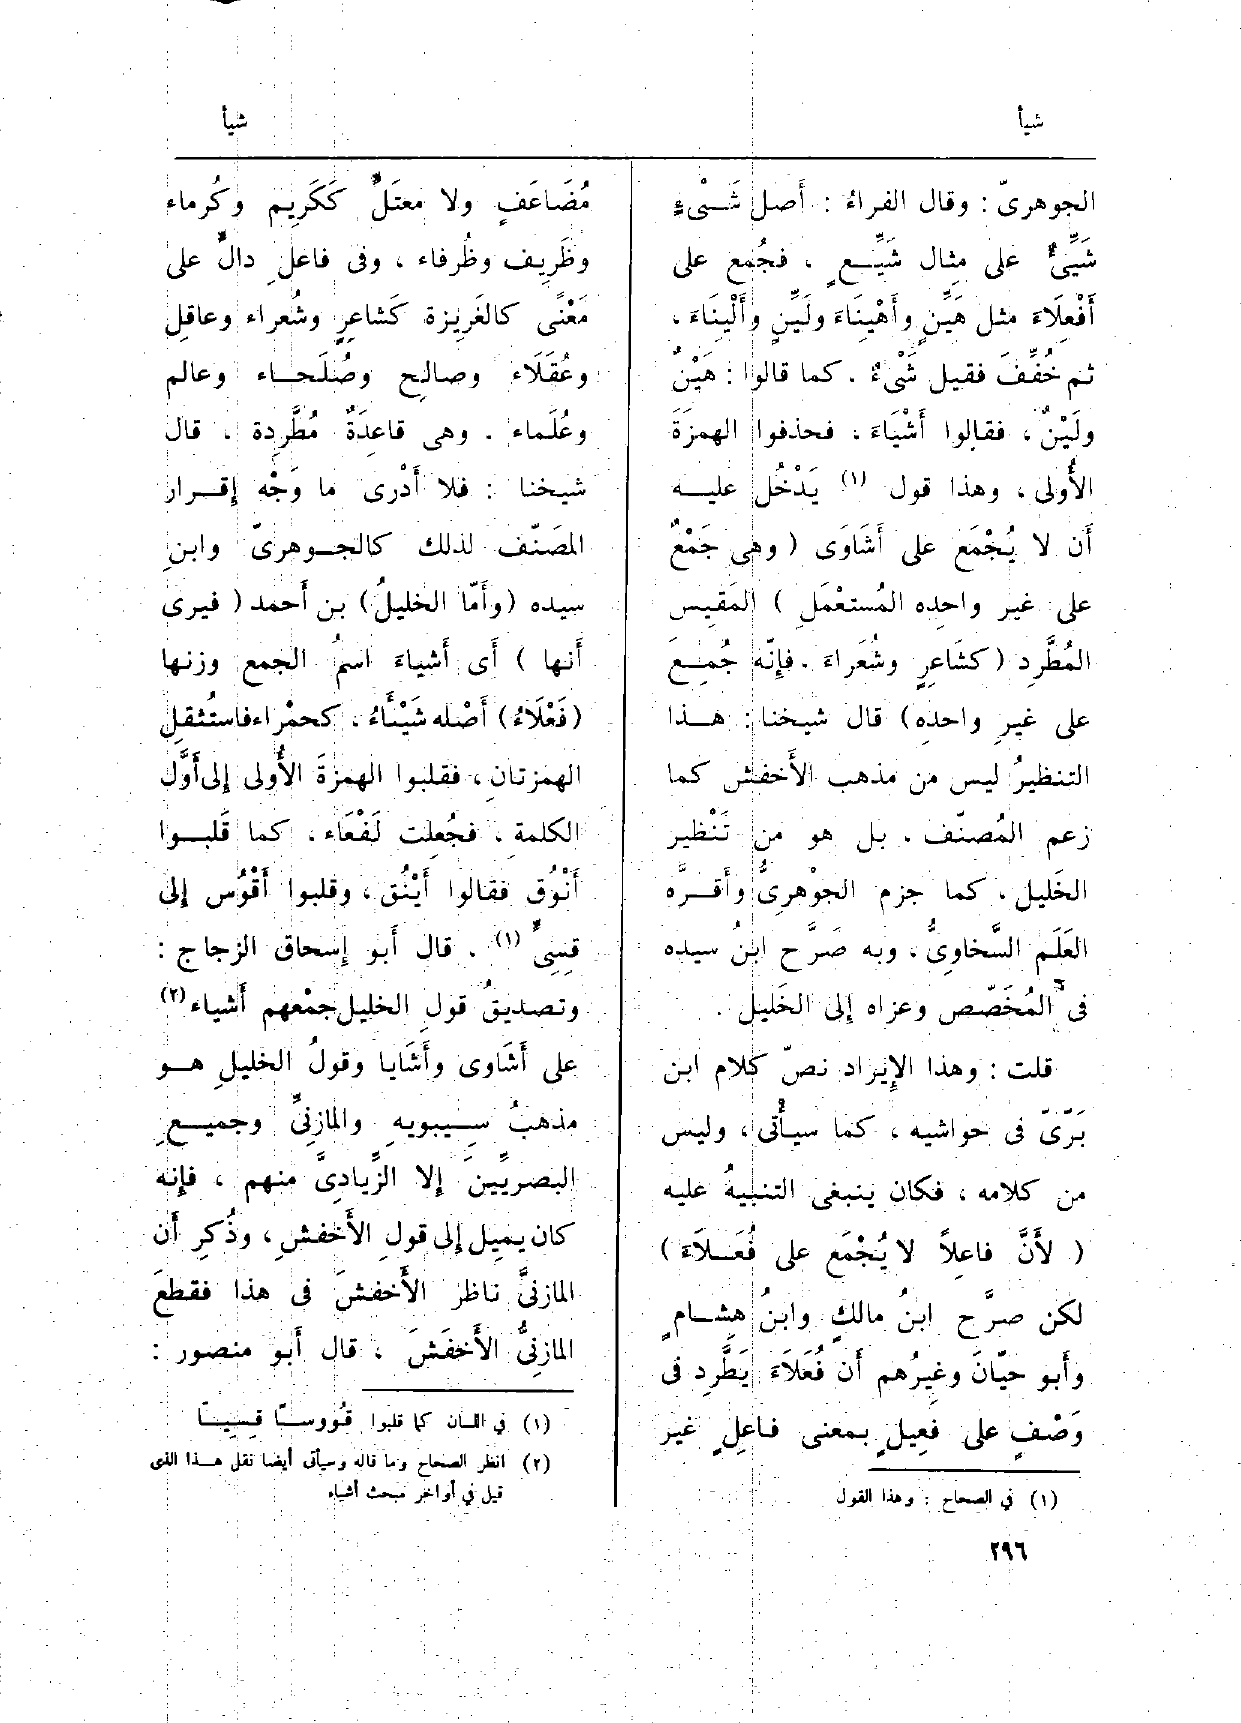 شيأ
شيأ
الجوهرىّ : وقال الفراءُ : أَصل شَىْءٍ
شَيِّئٌ على مِثال شَيِّعٍ ، فجُمع على
أَفْعِلَاءَ مثل هَيِّنٍ وأَهْيِنَاءَ ولَيِّنٍ وأَلْيِنَاءَ ،
ثم خُفِّفَ فقيل شَىْءٌ . كما قالوا : هَيْنٌ
ولَيْنٌ ، فقالوا أَشْيَاءَ ، فحذفوا الهمزَةَ
الأُولى ، وهذا قول (١) يَدْخُل عليه
أَن لا يُجْمَع على أَشَاوَى ( وهى جَمْعٌ
على غير واحِده المُستعْمَلِ ) المَقِيس
المُطَّرِد (كشَاعِرٍ وشُعَراءَ . فإِنّه جُمِعَ
على غيرِ واحده) قال شيخنا : هذا
التنظيرُ ليس من مذهب الأَخفش كما
زعم المُصنّف . بل هو من تَنْظير
الخَليل ، كما جزم الجوْهرىُّ وأَقرّه
العَلَم السَّخاوِىُّ ، وبه صَرَّح ابنُ سيده
فى المُخَصّص وعزاه إِلى الخَليل .
قلت : وهذا الإِيراد نصّ كلام ابن
بَرّىّ فى حواشيه ، كما سيأْتى ، وليس
من كلامه ، فكان ينبغى التنبيهُ عليه
( لأَنَّ فاعِلاً لا يُجْمَع على فُعَلاَءَ )
لكن صرَّح ابنُ مالكٍ وابنُ هِشامٍ
وأَبو حيّانَ وغيرُهم أَن فُعَلاَءَ يَطَّرِد فى
وَصْفٍ على فَعِيلٍ بمعنى فاعِلٍ غير
(١) في الصحاح : وهذا القول
مُضَاعَفٍ ولا معتَلٍّ كَكَرِيم وكُرماء
وظَرِيف وظُرفاء ، وفى فاعلٍ دالٍّ على
مَعْنًى كالغَرِيزة كَشاعرٍ وشُعراء وعاقلٍ
وعُقَلَاء وصالح وصُلَحاء وعالم
وعُلَماء . وهى قاعِدَةٌ مُطَّرِدة ، قال
شيخنا : فلا أَدْرى ما وَجْه إِقرار
المصَنّف لذلك كالجوهرىّ وابنِ
سيده (وأَمّا الخليلُ) بن أَحمد ( فيرى
أَنها ) أَى أَشياءَ اسمُ الجمع وزنها
(فَعْلَاءُ) أَصْله شَيْئَاءُ ، كحمْراء فاستُثقِل
الهمزتانِ ، فقلبوا الهمزةَ الأُولى إِلى أَوَّل
الكلمة ، فجُعِلت لَفْعَاء ، كما قَلبوا
أَنْوُق فقالوا أَيْنُق ، وقلبوا أَقْوُس إِلى
قِسِىٍّ (١) . قال أَبو إِسحاق الزجاج :
وتصديقُ قولِ الخليل جمْعهم أَشياء (٢)
على أَشَاوى وأَشَايا وقولُ الخليلِ هو
مذهبُ سِيبويهِ والمازِنىِّ وجميعِ
البصريِّينَ إِلا الزِّيادِىَّ منهم ، فإِنه
كان يميل إِلى قولِ الأَخفشِ ، وذُكِر أَن
المازنىَّ ناظر الأَخفشَ فى هذا فقطعَ
المازِنِىُّ الأَخفَشَ ، قال أَبو منصور :
(١) في اللسان كما قلبوا قُووسًا قِسِيًّا
(٢) انظر الصحاح وما قاله وسيأتى أيضا نقل هذا الذى
قيل في أواخر مبحث أشياء
٢٩٦